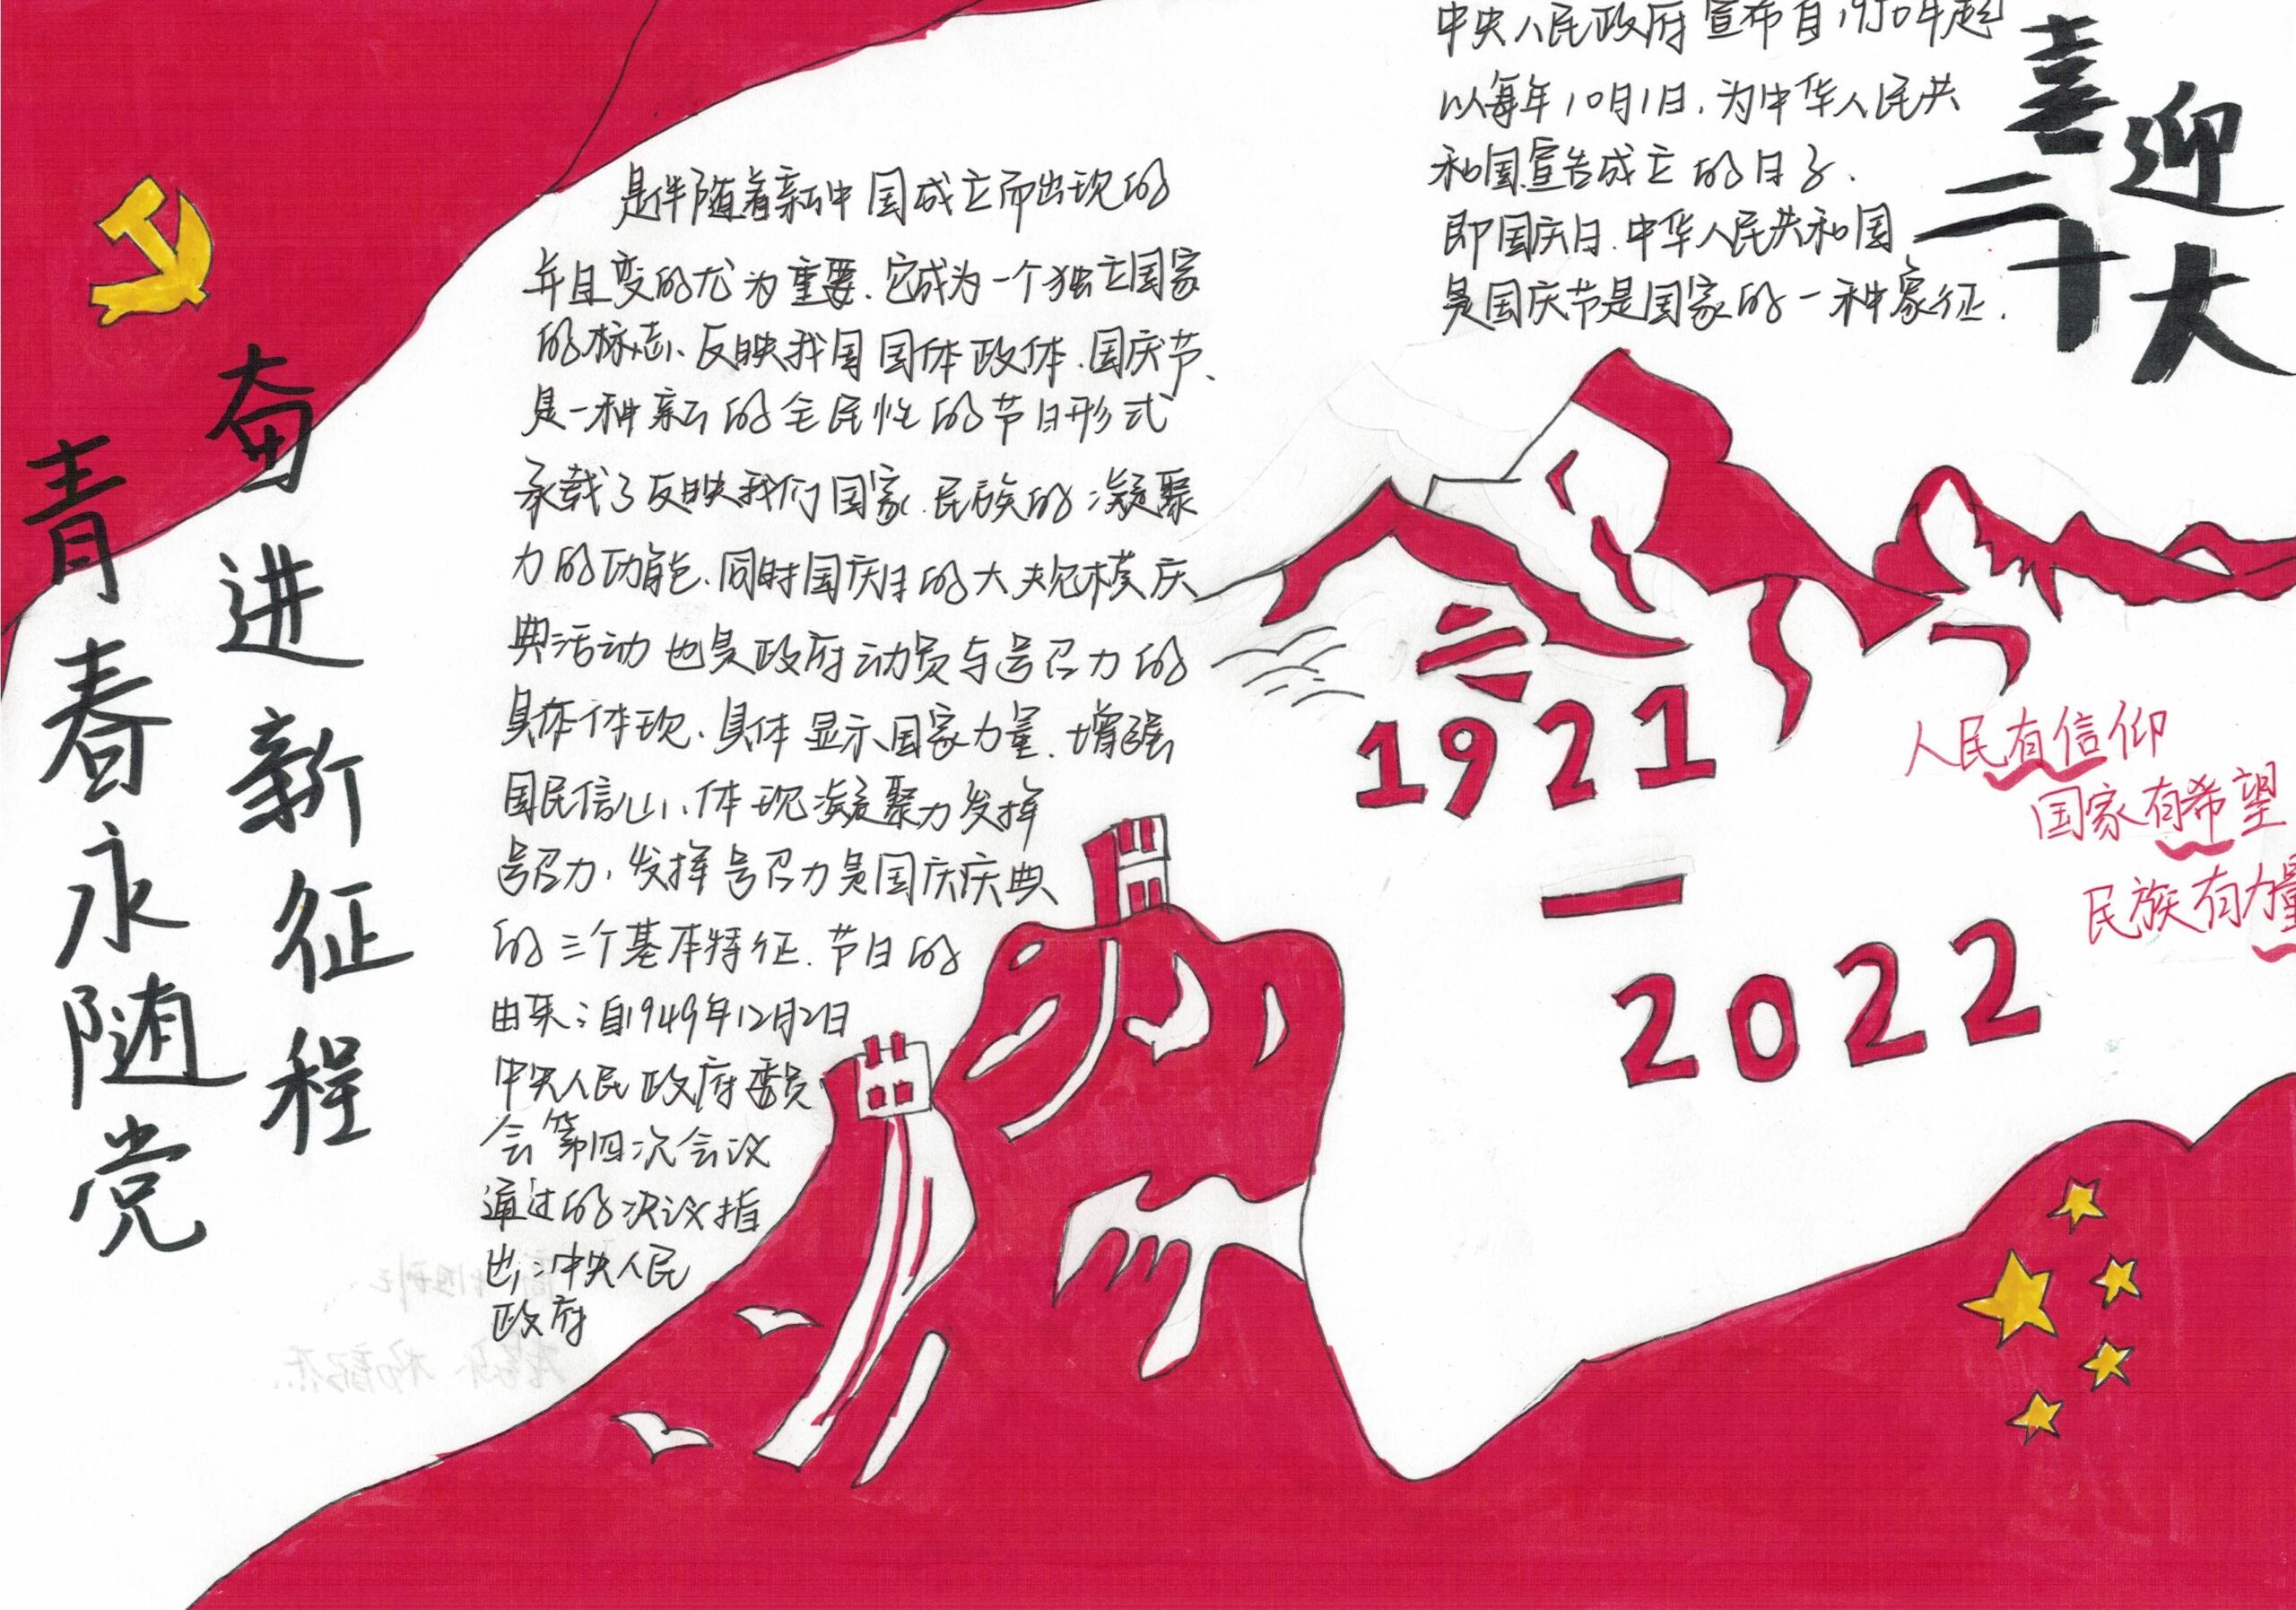 喜迎
二十大
奋进新征程
青春永随党
是伴随着新中国成立而出现的
并且变的尤为重要.它成为一个独立国家
的标志、反映我国国体政体.国庆节、
是一种新的全民性的节日形式
承载了反映我们国家.民族的凝聚
力的功能、同时国庆日的大规模庆
典活动也是政府动员与号召力的
具体体现、具体显示国家力量.增强
国民信心、体现凝聚力发挥
号召力,发挥号召力是国庆庆典
的三个基本特征.节日的
由来:自1949年12月2日
中央人民政府委员
会第四次会议
通过的决议指
出:中央人民
政府
中央人民政府宣布自1950年起
以每年10月1日,为中华人民共
和国宣告成立的日子.
即国庆日.中华人民共和国
是国庆节是国家的一种象征.
1921
—
2022
人民有信仰
国家有希望
民族有力量